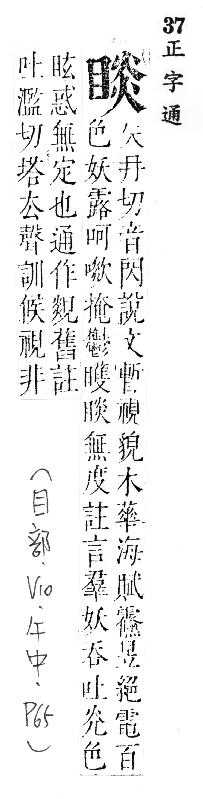 37正字通
睒
失冉切音閃說文暫視貌木華海賦䨴昱絕電百
色妖露呵㗵掩鬱矆睒無度註言羣妖吞吐光色
眩惑無定也通作覢舊註
吐濫切塔去聲訓候視非
(目部.V10.午中.P65)